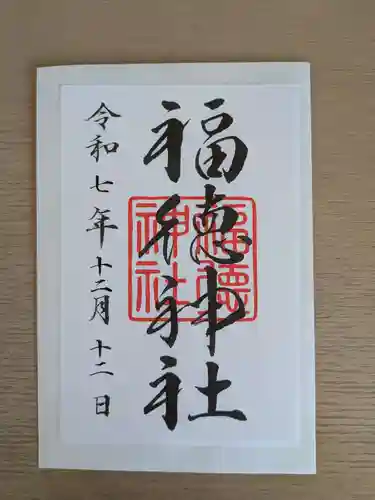 福徳神社
福徳
神社
令和七年十二月十二日